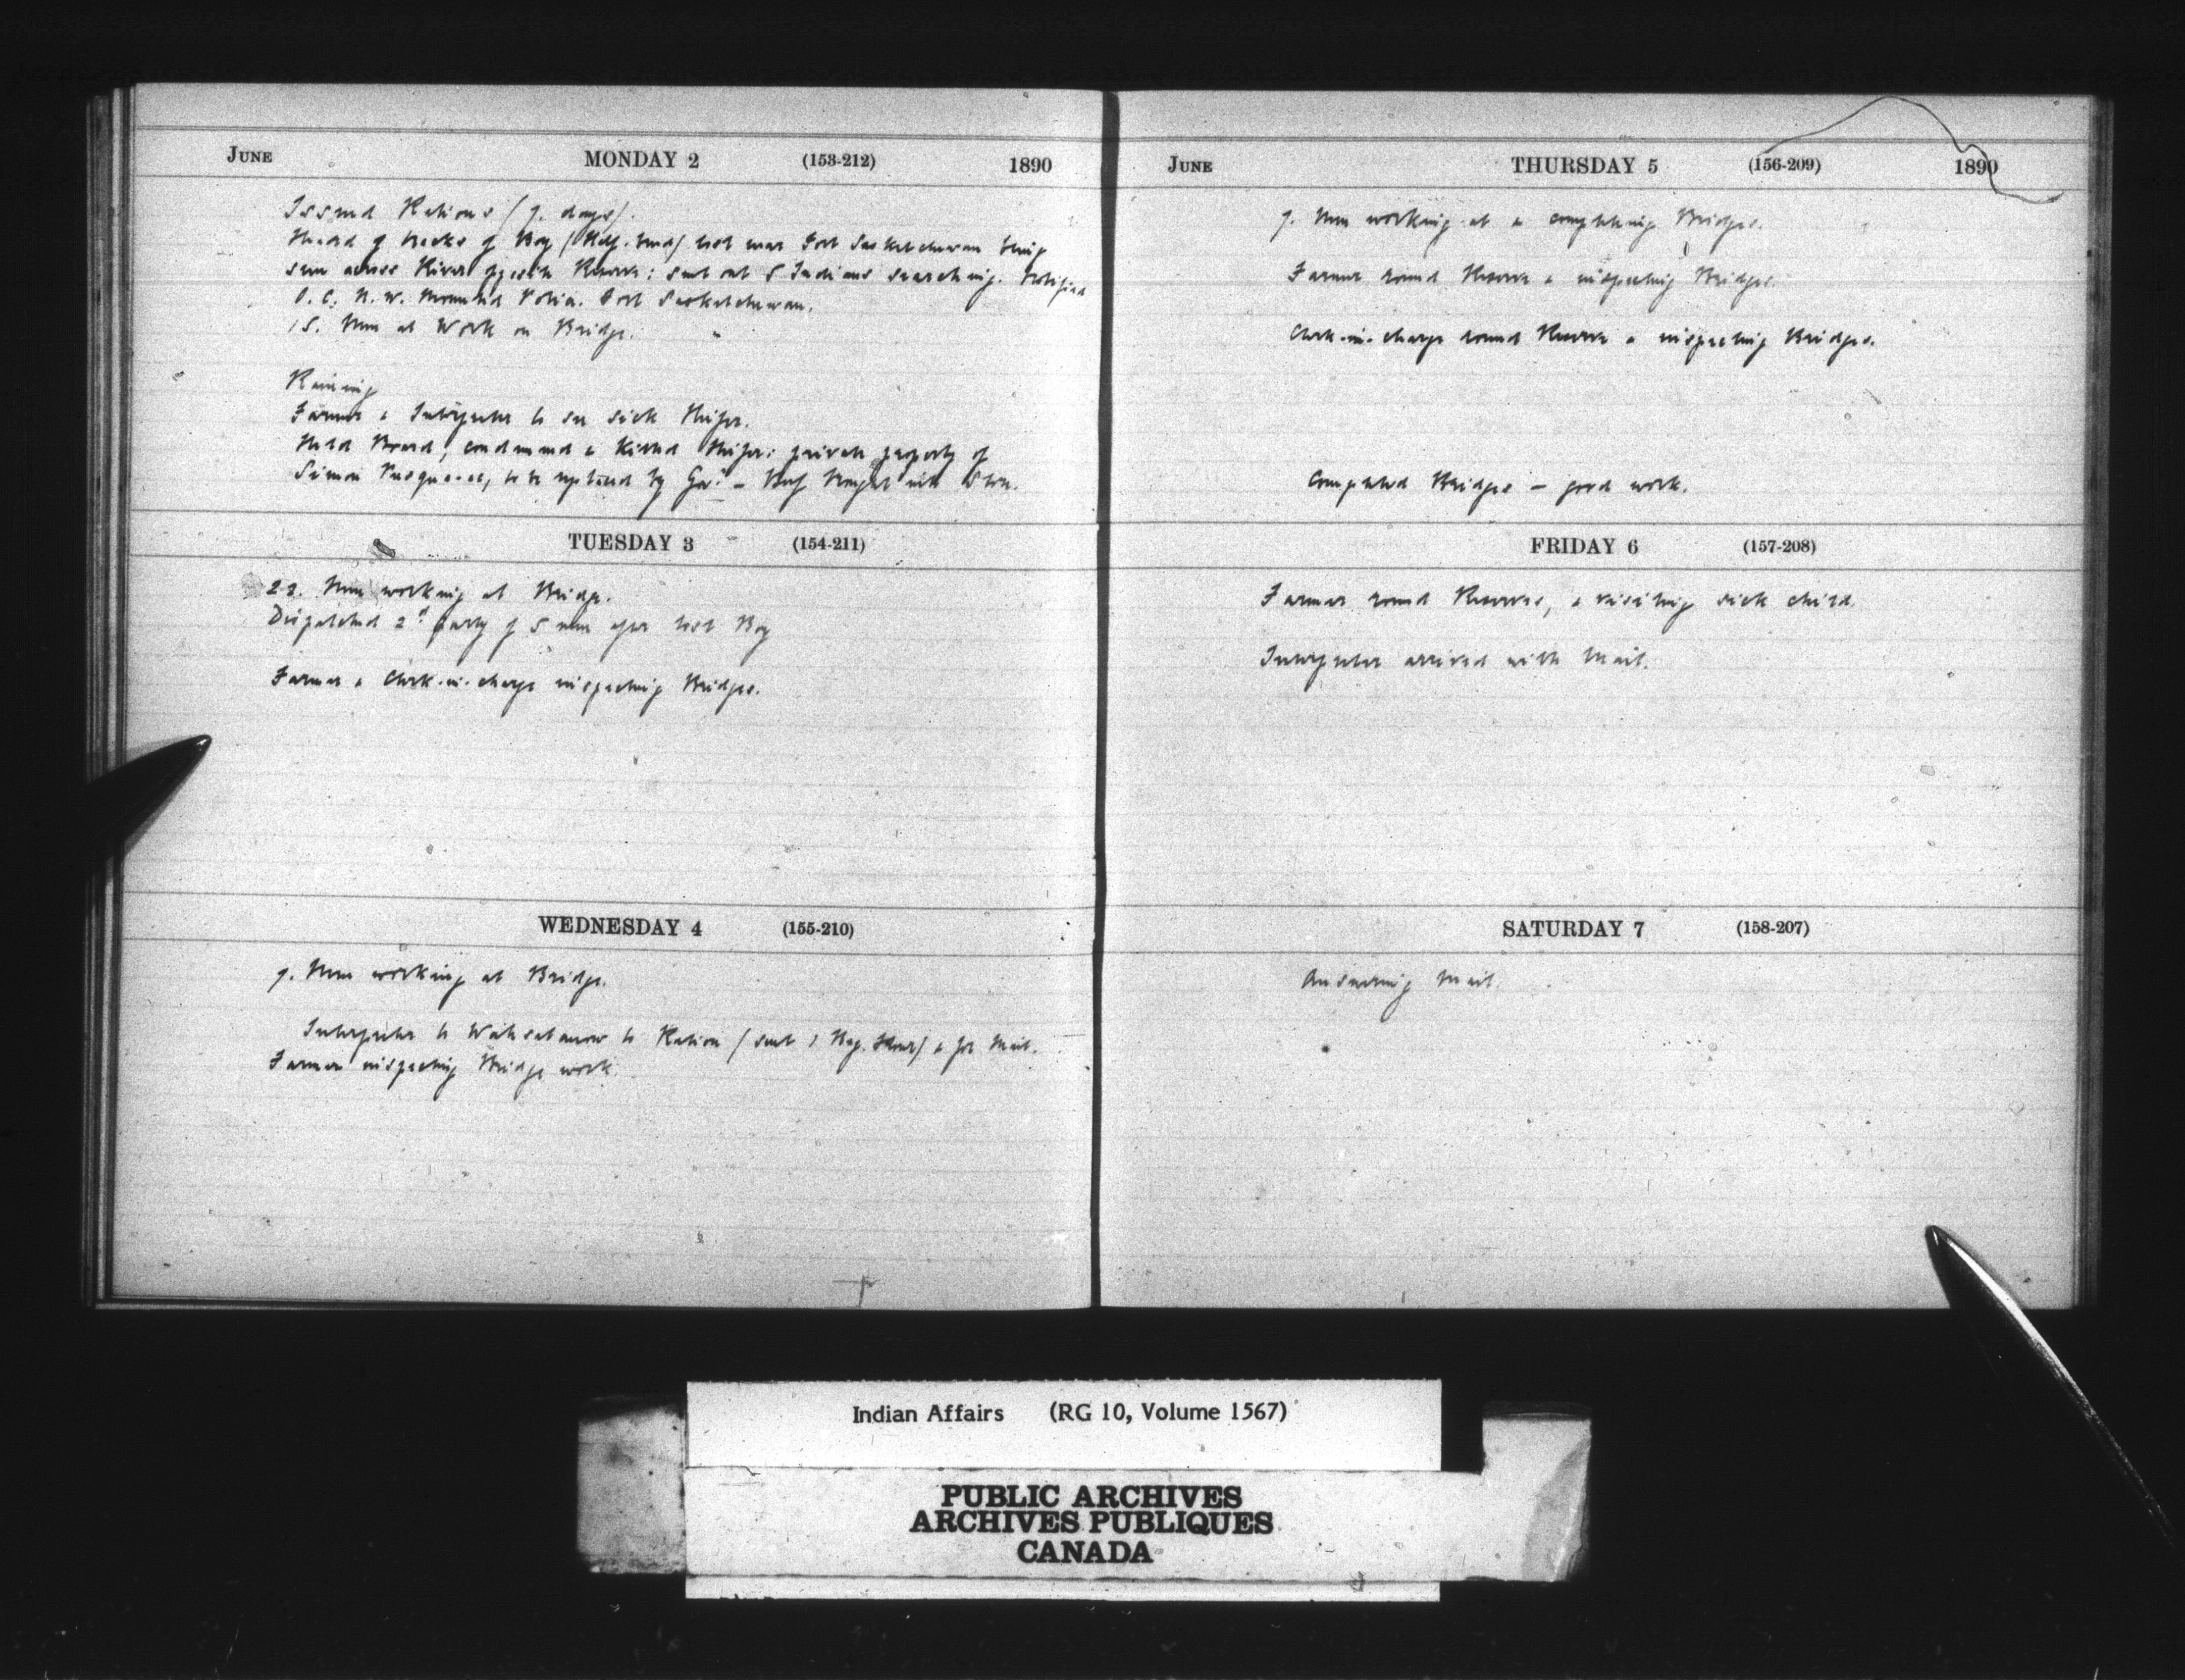 June MONDAY 2 (153-212) 1890
Issued Rations (7. days).
Heard of tracks of Boy (Half-breed) lost near Fort Saskatchewan being
seen across River opposite Reserve: sent out 5 Indians searching. Notified
O. C. N. W. Mounted Police. Fort Saskatchewan.
15. Men at Work on Bridge.
Raining
Farmer & Interpreter to see sick Heifer.
Held Board, condemned & killed Heifer: private property of
Simon to be replaced by Govt - Beef brought into Store.
TUESDAY 3 (154-211)
22. Men working at Bridge.
Dispatched 2d party of 5 men after lost Boy
Farmer & Clerk-in-charge inspecting Bridges.
WEDNESDAY 4 (155-210)
7. Men working at Bridge.
Interpreter to Wahsatanow to Ration (sent 1 Bag. Flour) & for Mail.
Farmer inspecting Bridge work.
June THURSDAY 5 (156-209) 1890
7. Men working at & completing Bridges.
Farmer round Reserve & inspecting Bridges.
Clerk-in-charge round Reserve & inspecting Bridges.
Completed Bridges - good work.
FRIDAY 6 (157-208)
Farmer round Reserves, & visiting sick child.
Interpreter arrived with Mail.
SATURDAY 7 (158-207)
Answering Mail.
Indian Affairs (RG 10, Volume 1567)
PUBLIC ARCHIVES
ARCHIVES PUBLIQUES
CANADA